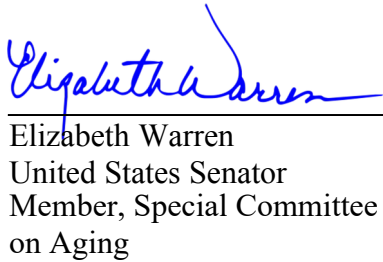 Elizabeth Warren
Elizabeth Warren
United States Senator
Member, Special Committee
on Aging